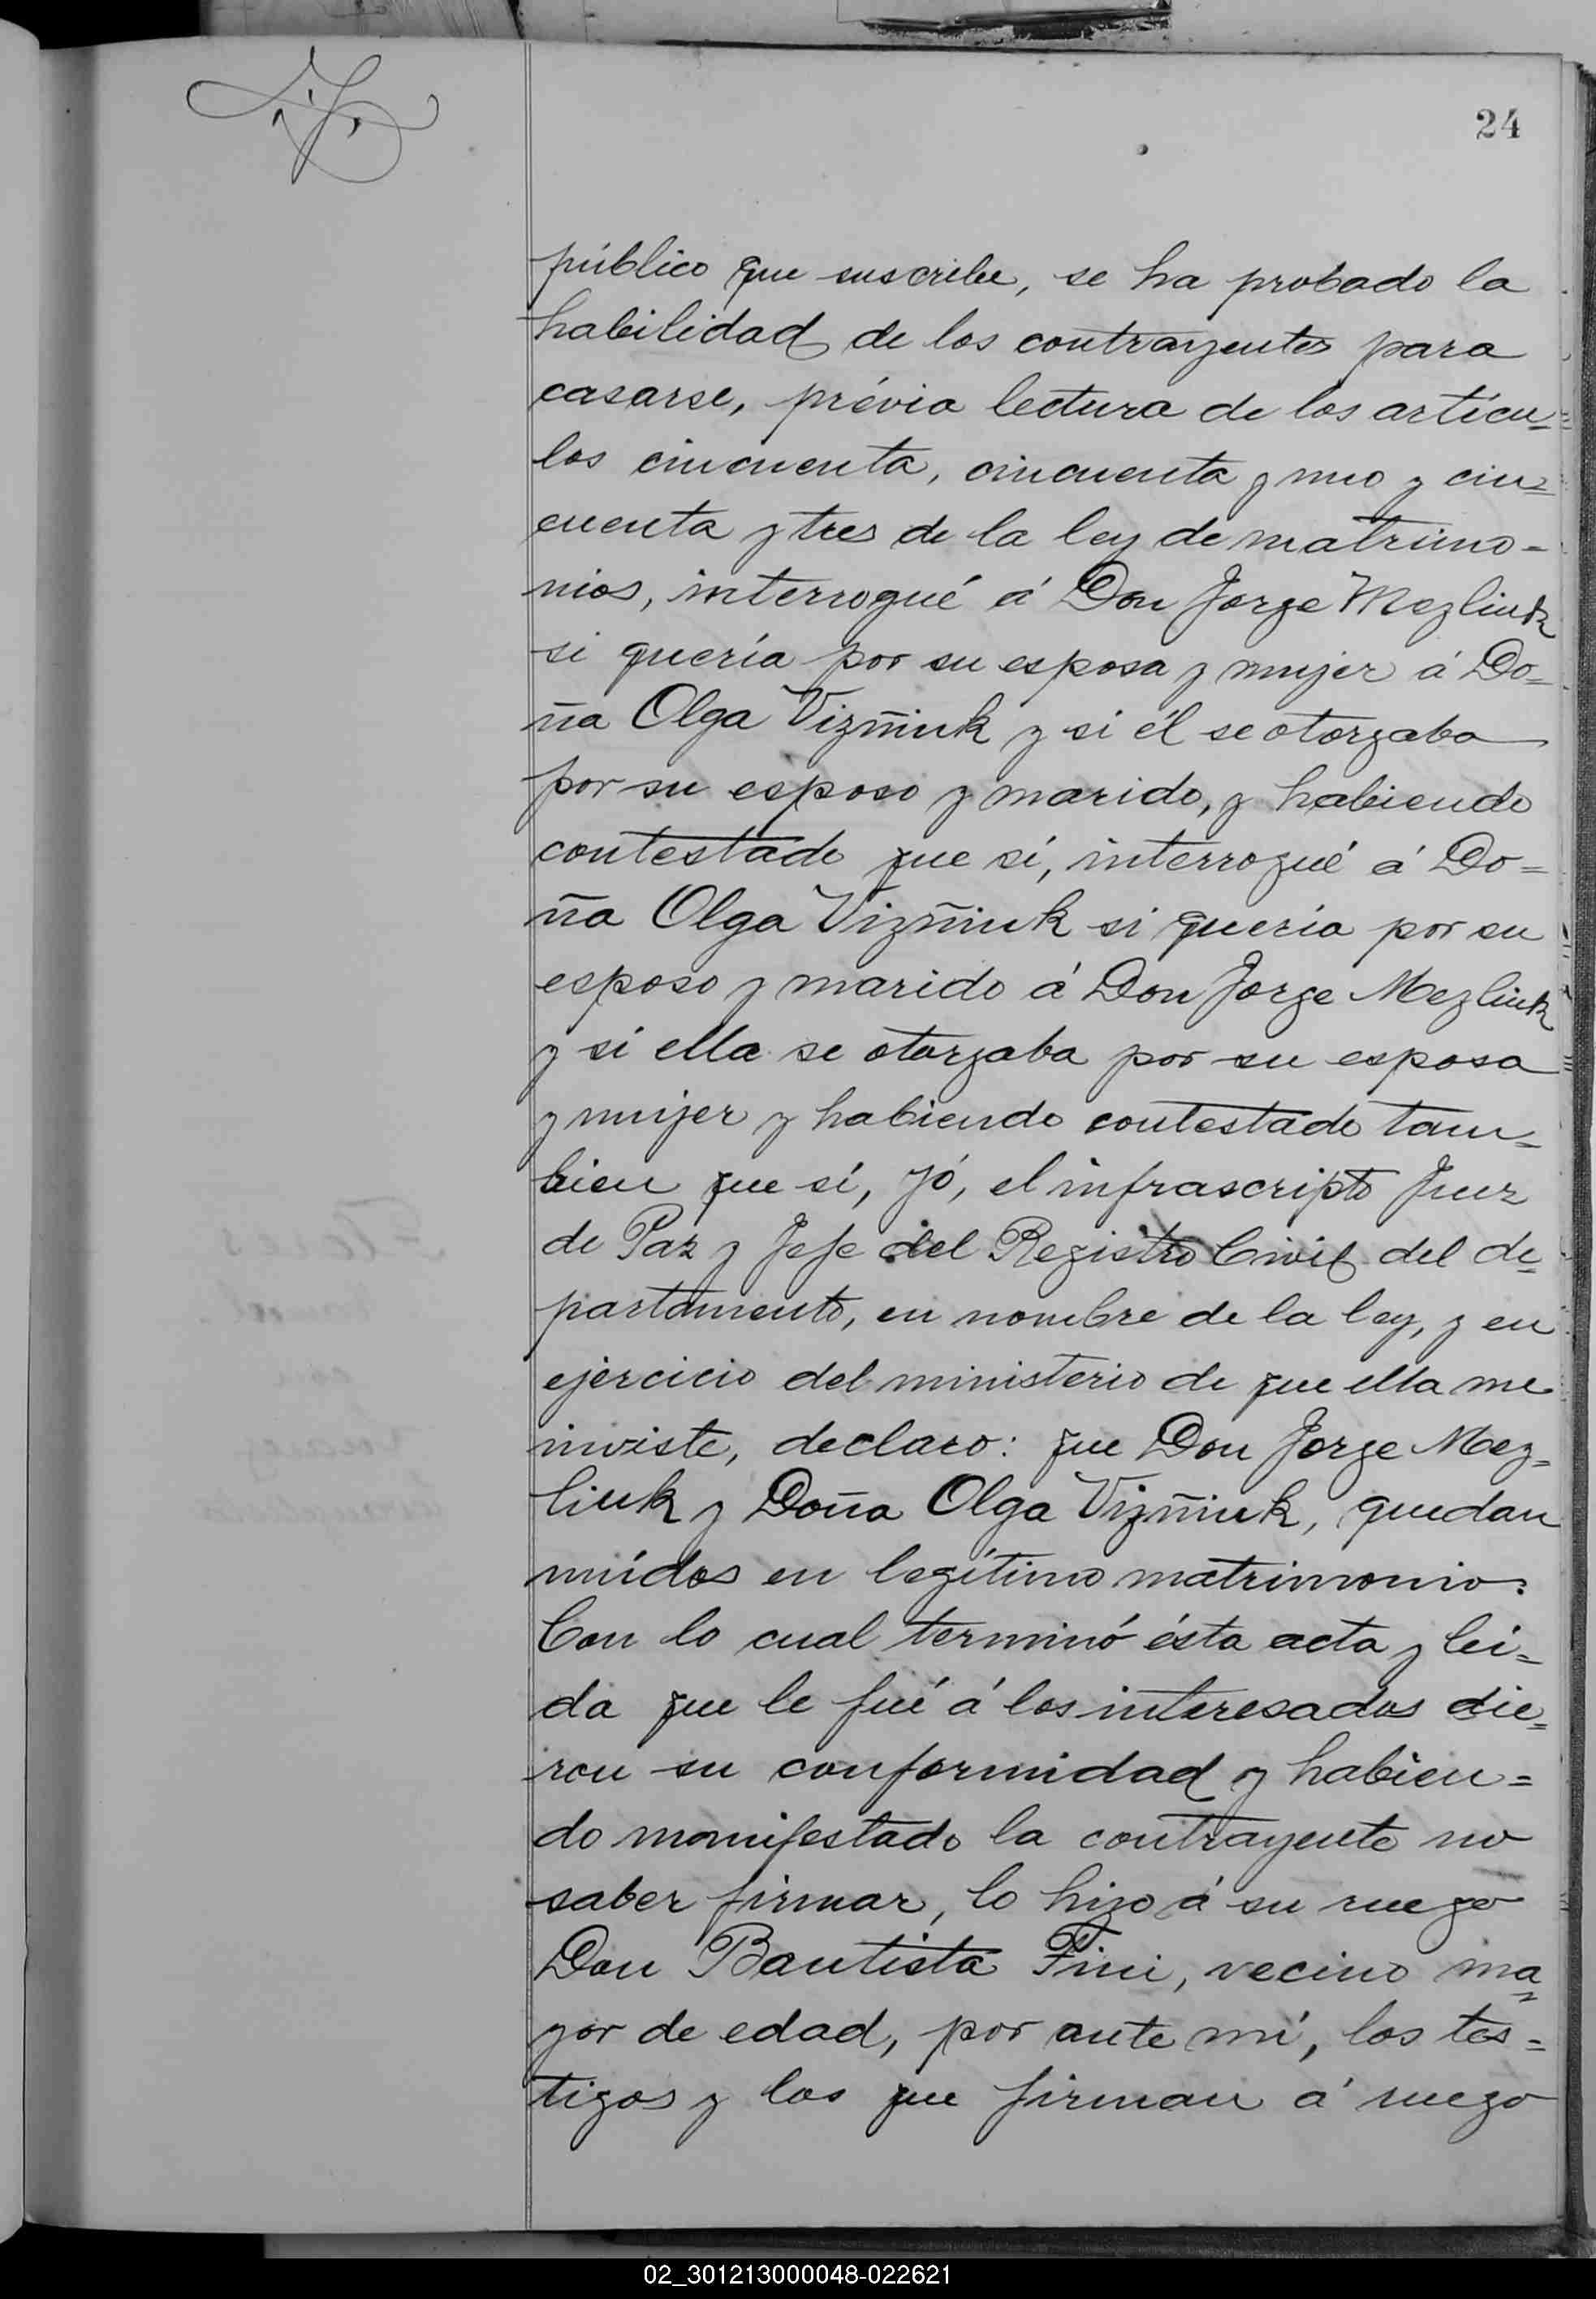 24
público que suscribe, se ha probado la
habilidad de los contrayentes para
casarse, prévia lectura de los artícu=
los cincuenta, cincuenta y uno y cin=
cuenta y tres de la ley de matrimo=
nios, interrogué á Don Jorge Mezliuk
si quería por su esposa y mujer á Do=
ña Olga Vizñiuk y si él se otorgaba
por su esposo y marido, y habiendo
contestado que sí, interrogué á Do=
ña Olga Vizñiuk si quería por su
esposo y marido á Don Jorge Mezliuk
y si ella se otorgaba por su esposa
y mujer y habiendo contestado tam=
bien que sí, yó, el infrascripto Juez
de Paz y Jefe del Registro Civil del de=
partamento, en nombre de la ley, y en
ejercicio del ministerio de que ella me
inviste, declaro: que Don Jorge Mez=
liuk y Doña Olga Vizñiuk, quedan
unídos en legítimo matrimonio.
Con lo cual terminó ésta acta y lei=
da que le fué á los interesados die=
ron su conformidad y habien=
do manifestado la contrayente no
saber firmar, lo hizo á su ruego
Don Bautista Fini, vecino ma=
yor de edad, por ante mí, los tes=
tigos y los que firman á ruego
02_301213000048-022621